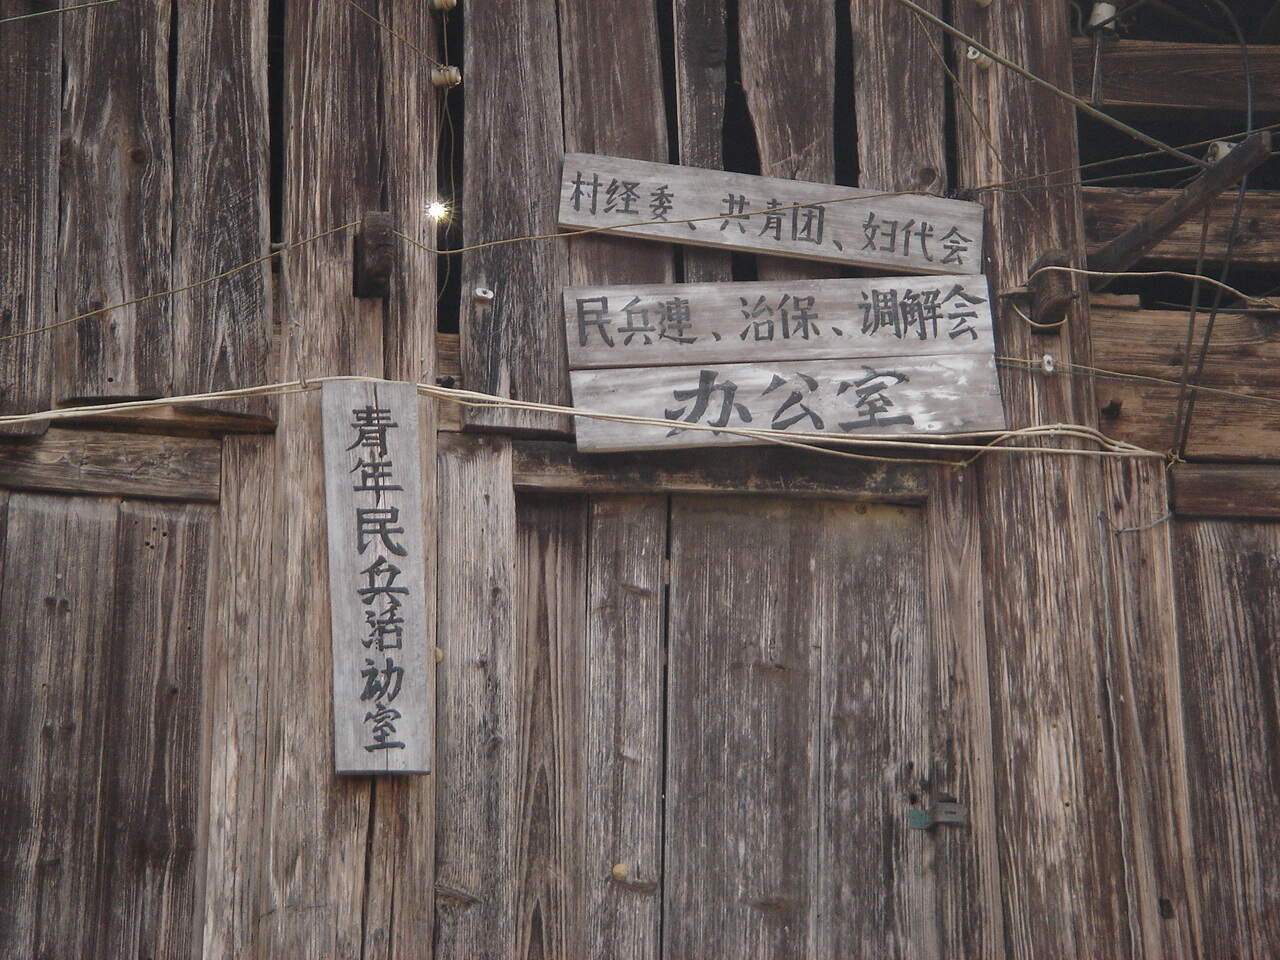 村经委、共青团、妇代会
民兵連、治保、调解会
办公室
青年民兵活动室